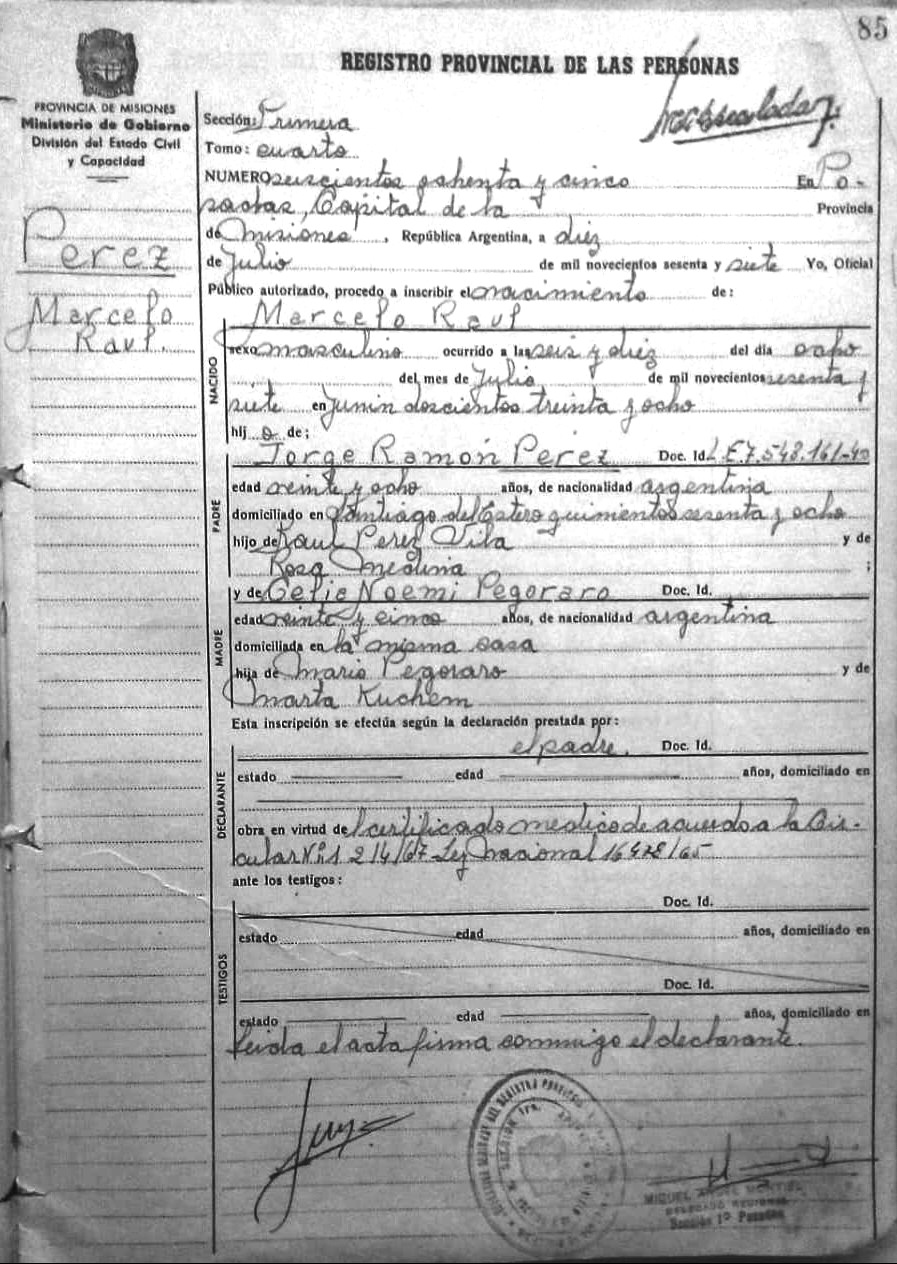 85
REGISTRO PROVINCIAL DE LAS PERSONAS
PROVINCIA DE MISIONES
Ministerio de Gobierno
División del Estado Civil
y Capacidad
Perez
Marcelo
Raul.
Sección: Primera
Tomo: cuarto
NUMERO seiscientos ochenta y cinco En Po-
sadas, Capital de la Provincia
de Misiones, República Argentina, a diez
de Julio de mil novecientos sesenta y siete Yo, Oficial
Público autorizado, procedo a inscribir el nacimiento de:
NACIDO
Marcelo Raul
sexo masculino ocurrido a las seis y diez del día ocho
del mes de Julio de mil novecientos sesenta y
siete en Junin doscientos treinta y ocho
hij o de;
PADRE
Jorge Ramón Perez Doc. Id. L.E.7.548.161
edad veinte y ocho años, de nacionalidad argentina
domiciliado en Santiago del Estero quinientos sesenta y ocho
hijo de Raul Perez y de
Rosa Medina ;
MADRE
y de Celia Noemi Pegoraro Doc. Id.
edad veinte y cinco años, de nacionalidad argentina
domiciliada en la misma casa
hija de Mario Pegoraro y de
Marta Kuchem
Esta inscripción se efectúa según la declaración prestada por:
DECLARANTE
el padre. Doc. Id.
estado edad años, domiciliado en
obra en virtud del certificado medico de acuerdo a la Cir-
cular Nº1 214/67 Ley Nacional 16478/65
ante los testigos:
TESTIGOS
Doc. Id.
estado edad años, domiciliado en
Doc. Id.
estado edad años, domiciliado en
Leida el acta firma conmigo el declarante.
MIGUEL
DELEGADO REGIONAL
Sección 1º Posadas